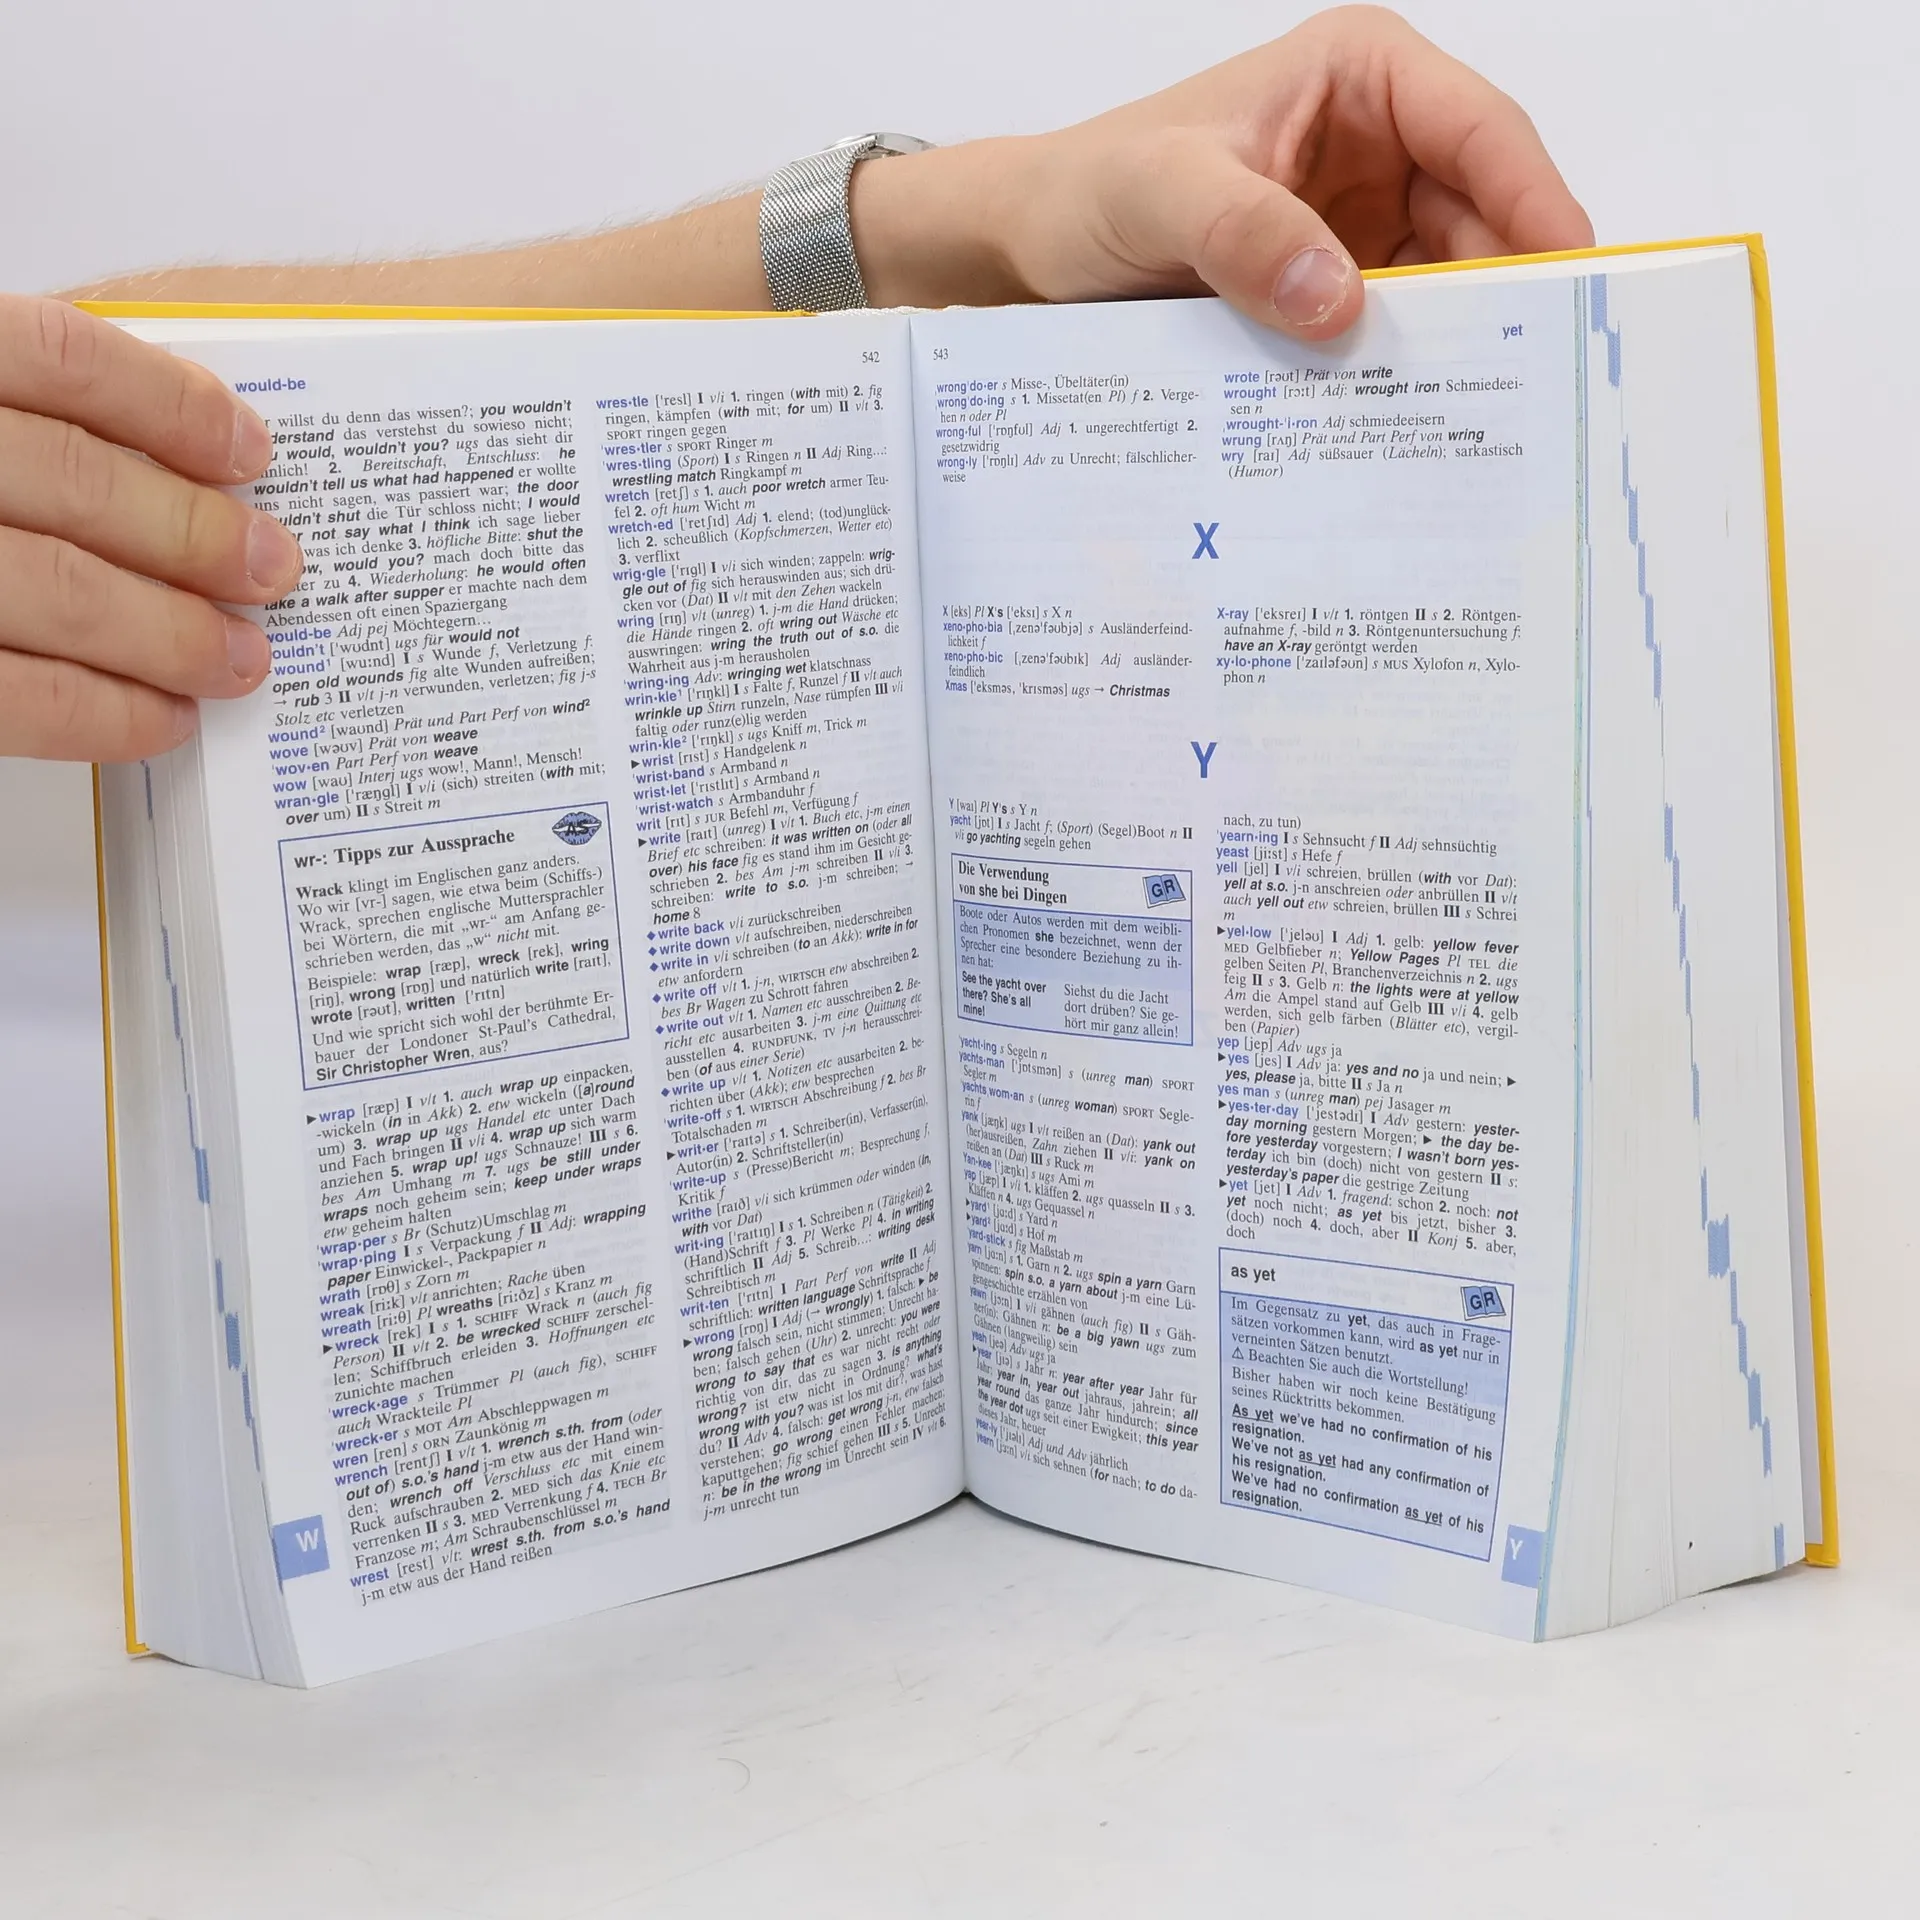 would-be
542
r willst du denn das wissen?; you wouldn't
derstand das verstehst du sowieso nicht;
u would, wouldn't you? ugs das sieht dir
nlich! 2. Bereitschaft, Entschluss: he
wouldn't tell us what had happened er wollte
uns nicht sagen, was passiert war; the door
uldn't shut die Tür schloss nicht; I would
r not say what I think ich sage lieber
was ich denke 3. höfliche Bitte: shut the
ow, would you? mach doch bitte das
ter zu 4. Wiederholung: he would often
take a walk after supper er machte nach dem
Abendessen oft einen Spaziergang
would-be Adj pej Möchtegern...
ouldn't ['wʊdnt] ugs für would not
wound¹ [wu:nd] I s Wunde f, Verletzung f:
open old wounds fig alte Wunden aufreißen;
→ rub 3 II v/t j-n verwunden, verletzen; fig j-s
Stolz etc verletzen
wound² [waʊnd] Prät und Part Perf von wind²
wove [wəʊv] Prät von weave
'wov·en Part Perf von weave
wow [waʊ] Interj ugs wow!, Mann!, Mensch!
wran·gle ['ræŋgl] I v/i (sich) streiten (with mit;
over um) II s Streit m
wr-: Tipps zur Aussprache
AS
Wrack klingt im Englischen ganz anders.
Wo wir [vr-] sagen, wie etwa beim (Schiffs-)
Wrack, sprechen englische Muttersprachler
bei Wörtern, die mit „wr-“ am Anfang ge-
schrieben werden, das „w“ nicht mit.
Beispiele: wrap [ræp], wreck [rek], wring
[rɪŋ], wrong [rɒŋ] und natürlich write [raɪt],
wrote [rəʊt], written ['rɪtn]
Und wie spricht sich wohl der berühmte Er-
bauer der Londoner St-Paul's Cathedral,
Sir Christopher Wren, aus?
▶wrap [ræp] I v/t 1. auch wrap up einpacken,
-wickeln (in in Akk) 2. etw wickeln ([a]round
um) 3. wrap up ugs Handel etc unter Dach
und Fach bringen II v/i 4. wrap up sich warm
anziehen 5. wrap up! ugs Schnauze! III s 6.
bes Am Umhang m 7. ugs be still under
wraps noch geheim sein; keep under wraps
etw geheim halten
'wrap·per s Br (Schutz)Umschlag m
'wrap·ping I s Verpackung f II Adj: wrapping
paper Einwickel-, Packpapier n
wrath [rɒθ] s Zorn m
wreak [ri:k] v/t anrichten; Rache üben
wreath [ri:θ] Pl wreaths [ri:ðz] s Kranz m
▶wreck [rek] I s 1. SCHIFF Wrack n (auch fig
Person) II v/t 2. be wrecked SCHIFF zerschel-
len; Schiffbruch erleiden 3. Hoffnungen etc
zunichte machen
'wreck·age s Trümmer Pl (auch fig), SCHIFF
auch Wrackteile Pl
'wreck·er s MOT Am Abschleppwagen m
wren [ren] s ORN Zaunkönig m
wrench [rentʃ] I v/t 1. wrench s.th. from (oder
out of) s.o.'s hand j-m etw aus der Hand win-
den; wrench off Verschluss etc mit einem
Ruck aufschrauben 2. MED sich das Knie etc
verrenken II s 3. MED Verrenkung f 4. TECH Br
Franzose m; Am Schraubenschlüssel m
wrest [rest] v/t: wrest s.th. from s.o.'s hand
j-m etw aus der Hand reißen
W
wres·tle ['resl] I v/i 1. ringen (with mit) 2. fig
ringen, kämpfen (with mit; for um) II v/t 3.
SPORT ringen gegen
'wres·tler s SPORT Ringer m
'wres·tling (Sport) I s Ringen n II Adj Ring...:
wrestling match Ringkampf m
wretch [retʃ] s 1. auch poor wretch armer Teu-
fel 2. oft hum Wicht m
wretch·ed ['retʃɪd] Adj 1. elend; (tod)unglück-
lich 2. scheußlich (Kopfschmerzen, Wetter etc)
3. verflixt
wrig·gle ['rɪgl] I v/i sich winden; zappeln: wrig-
gle out of fig sich herauswinden aus; sich drü-
cken vor (Dat) II v/t mit den Zehen wackeln
wring [rɪŋ] v/t (unreg) 1. j-m die Hand drücken;
die Hände ringen 2. oft wring out Wäsche etc
auswringen: wring the truth out of s.o. die
Wahrheit aus j-m herausholen
'wring·ing Adv: wringing wet klatschnass
wrin·kle¹ ['rɪŋkl] I s Falte f, Runzel f II v/t auch
wrinkle up Stirn runzeln, Nase rümpfen III v/i
faltig oder runz(e)lig werden
wrin·kle² ['rɪŋkl] s ugs Kniff m, Trick m
▶wrist [rɪst] s Handgelenk n
'wrist·band s Armband n
wrist·let ['rɪstlɪt] s Armband n
'wrist·watch s Armbanduhr f
writ [rɪt] s JUR Befehl m, Verfügung f
▶write [raɪt] (unreg) I v/t 1. Buch etc, j-m einen
Brief etc schreiben: it was written on (oder all
over) his face fig es stand ihm im Gesicht ge-
schrieben 2. bes Am j-m schreiben II v/i 3.
schreiben: write to s.o. j-m schreiben; →
home 8
◆write back v/i zurückschreiben
◆write down v/t aufschreiben, niederschreiben
◆write in v/i schreiben (to an Akk): write in for
etw anfordern
◆write off v/t 1. j-n, WIRTSCH etw abschreiben 2.
bes Br Wagen zu Schrott fahren
◆write out v/t 1. Namen etc ausschreiben 2. Be-
richt etc ausarbeiten 3. j-m eine Quittung etc
ausstellen 4. RUNDFUNK, TV j-n herausschrei-
ben (of aus einer Serie)
◆write up v/t 1. Notizen etc ausarbeiten 2. be-
richten über (Akk); etw besprechen
'write-off s 1. WIRTSCH Abschreibung f 2. bes Br
Totalschaden m
▶writ·er ['raɪtə] s 1. Schreiber(in), Verfasser(in),
Autor(in) 2. Schriftsteller(in)
'write-up s (Presse)Bericht m; Besprechung f,
Kritik f
writhe [raɪð] v/i sich krümmen oder winden (in,
with vor Dat)
writ·ing ['raɪtɪŋ] I s 1. Schreiben n (Tätigkeit) 2.
(Hand)Schrift f 3. Pl Werke Pl 4. in writing
schriftlich II Adj 5. Schreib...: writing desk
Schreibtisch m
writ·ten ['rɪtn] I Part Perf von write II Adj
schriftlich: written language Schriftsprache f
▶wrong [rɒŋ] I Adj (→ wrongly) 1. falsch: ▶ be
wrong falsch sein, nicht stimmen; Unrecht ha-
ben; falsch gehen (Uhr) 2. unrecht: you were
wrong to say that es war nicht recht oder
richtig von dir, das zu sagen 3. is anything
wrong? ist etw nicht in Ordnung? what's
wrong with you? was ist los mit dir?, was hast
du? II Adv 4. falsch: get wrong j-n, etw falsch
verstehen; go wrong einen Fehler machen;
kaputtgehen; fig schief gehen III s 5. Unrecht
n: be in the wrong im Unrecht sein IV v/t 6.
j-m unrecht tun
543
yet
'wrong'do·er s Misse-, Übeltäter(in)
'wrong'do·ing s 1. Missetat(en Pl) f 2. Verge-
hen n oder Pl
wrong·ful ['rɒŋfʊl] Adj 1. ungerechtfertigt 2.
gesetzwidrig
wrong·ly ['rɒŋlɪ] Adv zu Unrecht; fälschlicher-
weise
wrote [rəʊt] Prät von write
wrought [rɔ:t] Adj: wrought iron Schmiedeei-
sen n
,wrought-'i·ron Adj schmiedeeisern
wrung [rʌŋ] Prät und Part Perf von wring
wry [raɪ] Adj süßsauer (Lächeln); sarkastisch
(Humor)
X
X [eks] Pl X's ['eksɪz] s X n
xeno·pho·bia [,zenə'fəʊbjə] s Ausländerfeind-
lichkeit f
xeno·pho·bic [,zenə'fəʊbɪk] Adj ausländer-
feindlich
Xmas ['eksməs, 'krɪsməs] ugs → Christmas
X-ray ['eksreɪ] I v/t 1. röntgen II s 2. Röntgen-
aufnahme f, -bild n 3. Röntgenuntersuchung f:
have an X-ray geröntgt werden
xy·lo·phone ['zaɪləfəʊn] s MUS Xylofon n, Xylo-
phon n
Y
Y [waɪ] Pl Y's s Y n
yacht [jɒt] I s Jacht f; (Sport) (Segel)Boot n II
v/i go yachting segeln gehen
Die Verwendung
von she bei Dingen
GR
Boote oder Autos werden mit dem weibli-
chen Pronomen she bezeichnet, wenn der
Sprecher eine besondere Beziehung zu ih-
nen hat:
See the yacht over
there? She's all
mine!
Siehst du die Jacht
dort drüben? Sie ge-
hört mir ganz allein!
'yacht·ing s Segeln n
yachts·man ['jɒtsmən] s (unreg man) SPORT
Segler m
'yachts,wom·an s (unreg woman) SPORT Segle-
rin f
yank [jæŋk] ugs I v/t reißen an (Dat): yank out
(her)ausreißen, Zahn ziehen II v/i: yank on
reißen an (Dat) III s Ruck m
Yan·kee ['jæŋkɪ] s ugs Ami m
yap [jæp] I v/i 1. kläffen 2. ugs quasseln II s 3.
Kläffen n 4. ugs Gequassel n
▶yard¹ [jɑ:d] s Yard n
▶yard² [jɑ:d] s Hof m
'yard·stick s fig Maßstab m
yarn [jɑ:n] s 1. Garn n 2. ugs spin a yarn Garn
spinnen: spin s.o. a yarn about j-m eine Lü-
gengeschichte erzählen von
yawn [jɔ:n] I v/i gähnen (auch fig) II s Gäh-
ner(in); Gähnen n: be a big yawn ugs zum
Gähnen (langweilig) sein
yeah [jeə] Adv ugs ja
▶year [jɪə] s Jahr n: year after year Jahr für
Jahr; year in, year out jahraus, jahrein; all
year round das ganze Jahr hindurch; since
the year dot ugs seit einer Ewigkeit; this year
dieses Jahr, heuer
year·ly ['jɪəlɪ] Adj und Adv jährlich
yearn [jɜ:n] v/i sich sehnen (for nach; to do da-
nach, zu tun)
'yearn·ing I s Sehnsucht f II Adj sehnsüchtig
yeast [ji:st] s Hefe f
yell [jel] I v/i schreien, brüllen (with vor Dat):
yell at s.o. j-n anschreien oder anbrüllen II v/t
auch yell out etw schreien, brüllen III s Schrei
m
▶yel·low ['jeləʊ] I Adj 1. gelb: yellow fever
MED Gelbfieber n; Yellow Pages Pl TEL die
gelben Seiten Pl, Branchenverzeichnis n 2. ugs
feig II s 3. Gelb n: the lights were at yellow
Am die Ampel stand auf Gelb III v/i 4. gelb
werden, sich gelb färben (Blätter etc), vergil-
ben (Papier)
yep [jep] Adv ugs ja
▶yes [jes] I Adv ja: yes and no ja und nein; ▶
yes, please ja, bitte II s Ja n
yes man s (unreg man) pej Jasager m
▶yes·ter·day ['jestədɪ] I Adv gestern: yester-
day morning gestern Morgen; ▶ the day be-
fore yesterday vorgestern; I wasn't born yes-
terday ich bin (doch) nicht von gestern II s:
yesterday's paper die gestrige Zeitung
▶yet [jet] I Adv 1. fragend: schon 2. noch: not
yet noch nicht; as yet bis jetzt, bisher 3.
(doch) noch 4. doch, aber II Konj 5. aber,
doch
as yet
GR
Im Gegensatz zu yet, das auch in Frage-
sätzen vorkommen kann, wird as yet nur in
verneinten Sätzen benutzt.
⚠ Beachten Sie auch die Wortstellung!
Bisher haben wir noch keine Bestätigung
seines Rücktritts bekommen.
As yet we've had no confirmation of his
resignation.
We've not as yet had any confirmation of
his resignation.
We've had no confirmation as yet of his
resignation.
Y